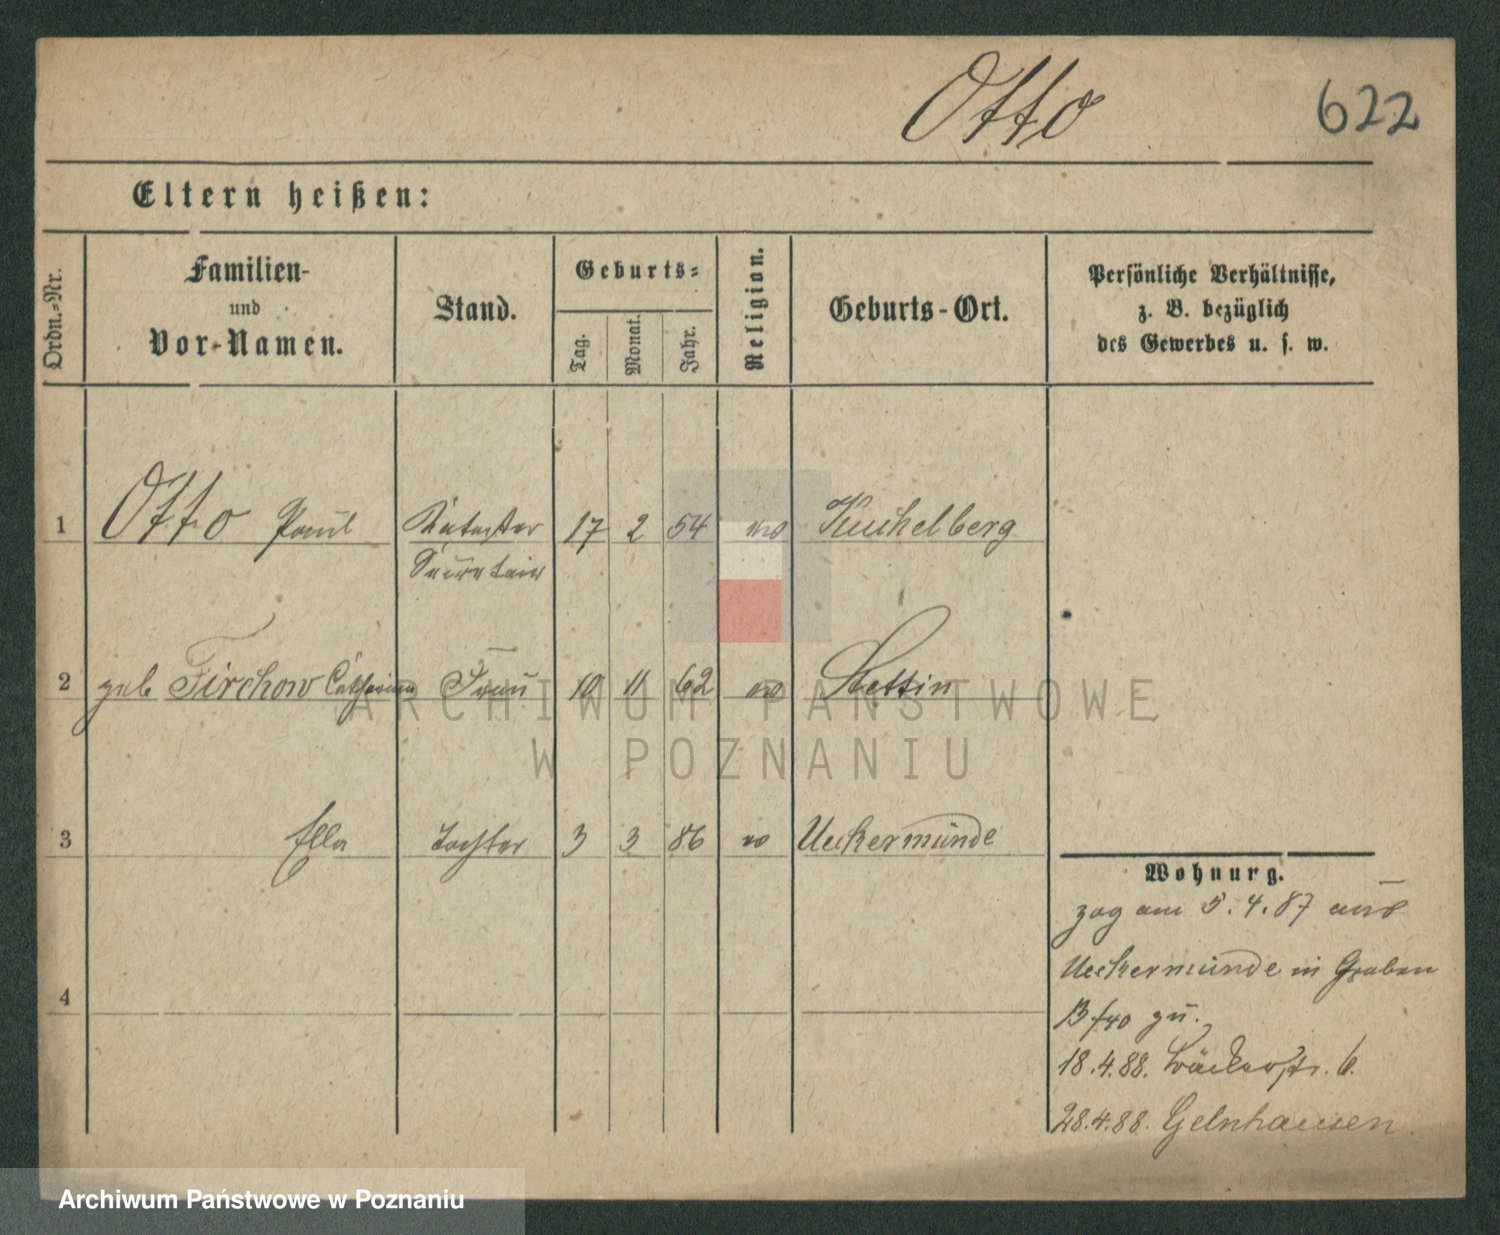 Otto 622
Eltern heißen:
Ordn.-Nr. Familien- und Vor-Namen. Stand. Geburts- Tag. Monat. Jahr. Religion. Geburts-Ort. Persönliche Verhältnisse, z. B. bezüglich des Gewerbes u. s. w.
1 Otto Paul Kataster 17 2 54 Kuchelberg
Secretair
2 geb Firchow Catharina Frau 10 11 62 Stettin
3 Ella Tochter 3 3 86 Ueckermünde
Wohnung.
zog am 5.4.87 aus
Ueckermünde in Graben
4
zu.
18.4.88. Bäckerstr. 6.
28.4.88. Gelnhausen
ARCHIWUM PAŃSTWOWE
W POZNANIU
Archiwum Państwowe w Poznaniu